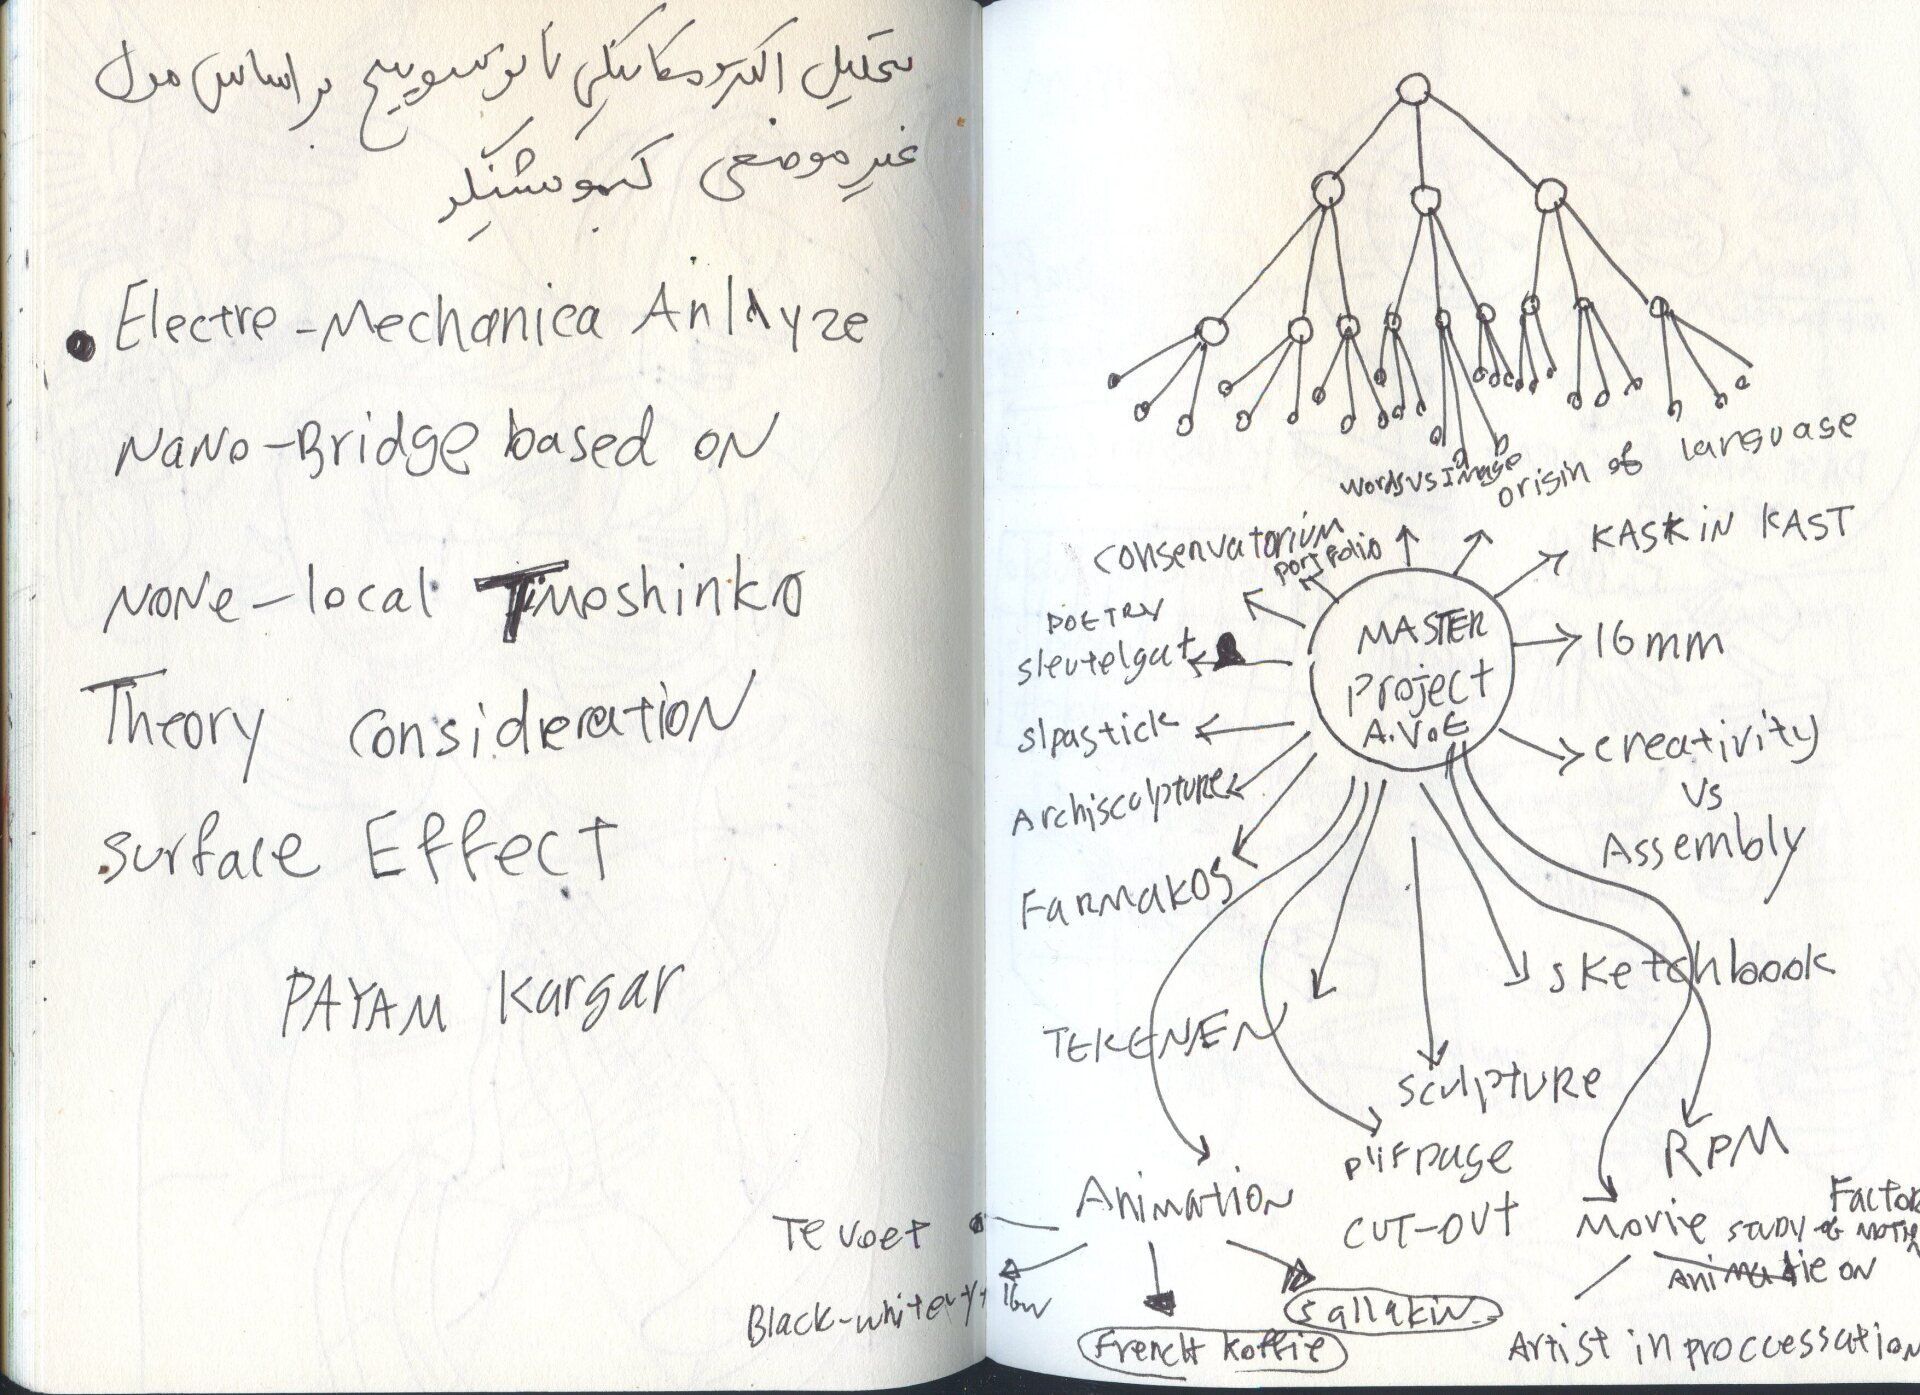 تحلیل الکترومکانیکی نانوسوییچ بر اساس مدل
غیر موضعی تیموشنکو
Electre-Mechanica Anlayze
NaNo-Bridge based ON
NONe-local Timoshinko
Theory consideration
surface Effect
PAYAM Kargar
Te voet
Black-white-y
words vs Image
origin of language
conservatorium
portfolio
KASK in KAST
POETRY
sleutelgat
MASTER
project
A.V.E
16mm
slpastick
creativity
vs
Assembly
Archisculpture
Farmakos
sketchbook
TEKENEN
sculpture
plifpage
cut-out
RPM
Animation
Movie
Factor
study of motion
Animatie on
sallakin
French koffie
Artist in proccessation